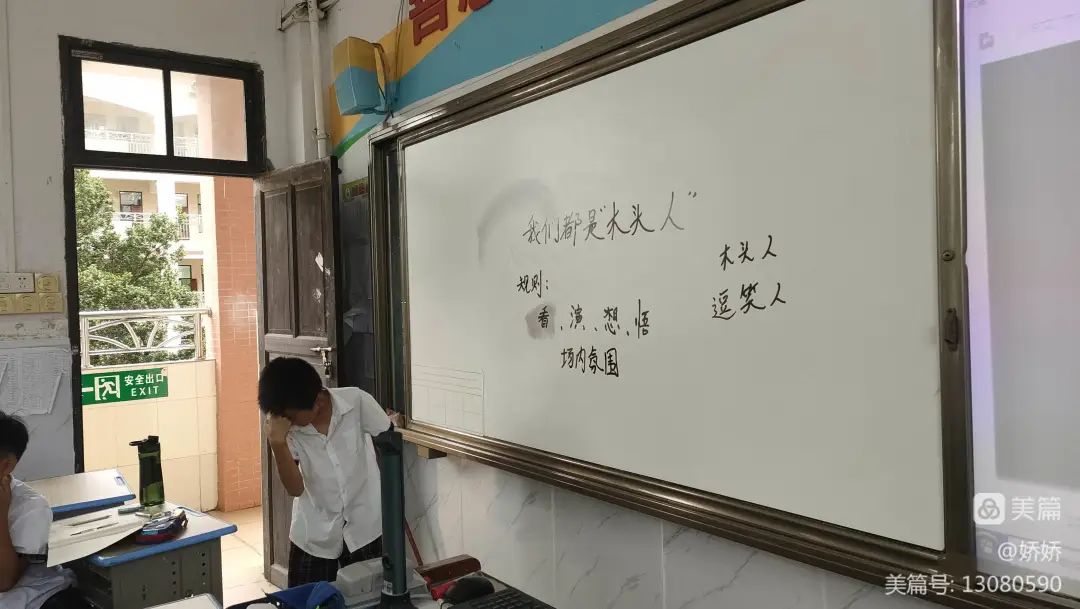 我们都是"木头人"
规则：
看、演、想、悟
场内氛围
木头人
逗笑人
安全出口
EXIT
美篇
@娇娇
美篇号: 13080590